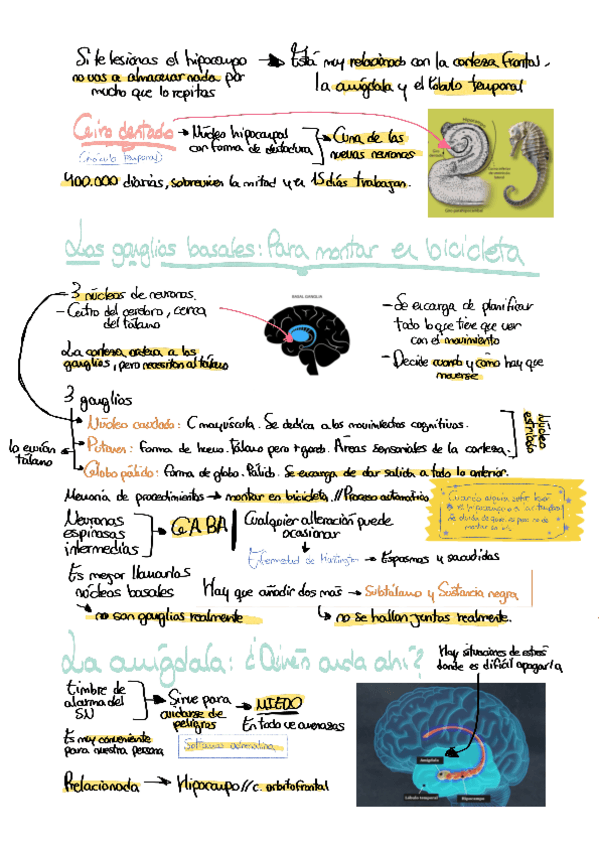 Si te lesionas el hipocampo
no vas a almacenar nada por
mucho que lo repitas
Está muy relacionado con la corteza frontal,
la amígdala y el lóbulo temporal
Giro dentado
Núcleo hipocampal
con forma de dentadura
Cuna de las
nuevas neuronas
400.000 diarias, sobreviven la mitad y en 15 días trabajan.
Los ganglios basales: Para montar en bicicleta
3 núcleos de neuronas.
- Centro del cerebro, cerca
del tálamo
La corteza ordena a los
ganglios, pero necesitan al tálamo
BASAL GANGLIA
- Se encarga de planificar
todo lo que tiene que ver
con el movimiento
- Decide cuando y como hay que
moverse
3 ganglios
Núcleo caudado: C mayúscula. Se dedica a los movimientos cognitivos.
Putamen: Forma de huevo. Tálamo pero + gordo. Áreas sensoriales de la corteza.
Globo pálido: Forma de globo. Pálido. Se encarga de dar salida a todo lo anterior.
Núcleo
estriado
lo envían
tálamo
Memoria de procedimientos → montar en bicicleta // Proceso automático
Cuando alguien sufre lesión
Neuronas
espinosas
intermedias
GABA
Cualquier alteración puede
ocasionar
Enfermedad de Huntington → Espasmos y sacudidas
Es mejor llamarlos
núcleos basales
no son ganglios realmente
Hay que añadir dos más → Subtálamo y Sustancia negra
no se hallan juntas realmente.
La amígdala: ¿Quién anda ahí?
Hay situaciones de estrés
donde es difícil apagarla
Timbre de
alarma del
SN
Sirve para
cuidarse de
peligros
MIEDO
En todo ve amenazas
Es muy conveniente
para nuestra persona
Relacionada → Hipocampo // c. orbitofrontal
Amígdala
Lóbulo temporal
Hipocampo